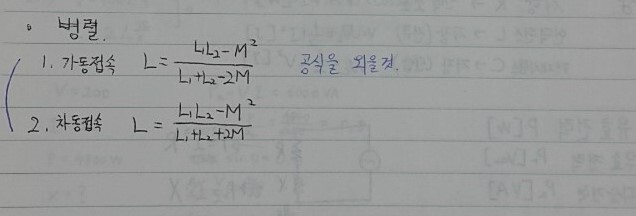 ◦ 병렬.
1. 가동접속 L = (L₁L₂-M²)/(L₁+L₂-2M) 공식을 외울것.
2. 차동접속 L = (L₁L₂-M²)/(L₁+L₂+2M)